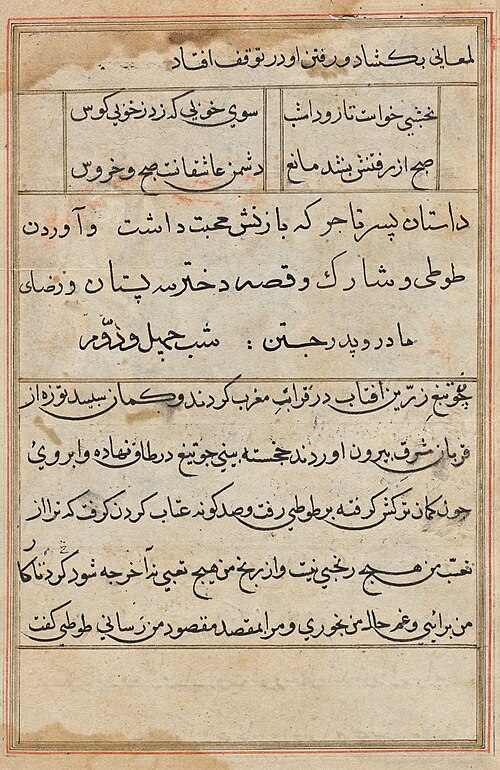 لمعانی بکشاد و رفتن او در توقف افتاد
نخشبی خواست تا رود امشب سوی خوبی که زد ز خوبی کوس
صبح از رفتنش بشد مانع دشمن عاشقانت صبح و خروس
داستان پسر تاجر که با زنش محبت داشت و آوردن
طوطی و شارک و قصه دختر سه پستان و رضای
مادر و پدر جستن : شب چهل و دوم
چو تیغ زرین افتاب در قراب مغرب کردند و کمان سپید توزه از
قربان مشرق بیرون اوردند خجسته بینی چو تیغ در طاق نهاده و ابروی
چون کمان ترکش کرفته بر طوطی رفت و صد کونه عتاب کردن کرفت که ترا از
تعب من هیچ رنجی نیست و از رنج من هیچ تعبی نه آخر چه شود کرد تا کار
من برائی و غم حال من بخوری و مرا بمقصد مقصود من رسانی طوطی کفت